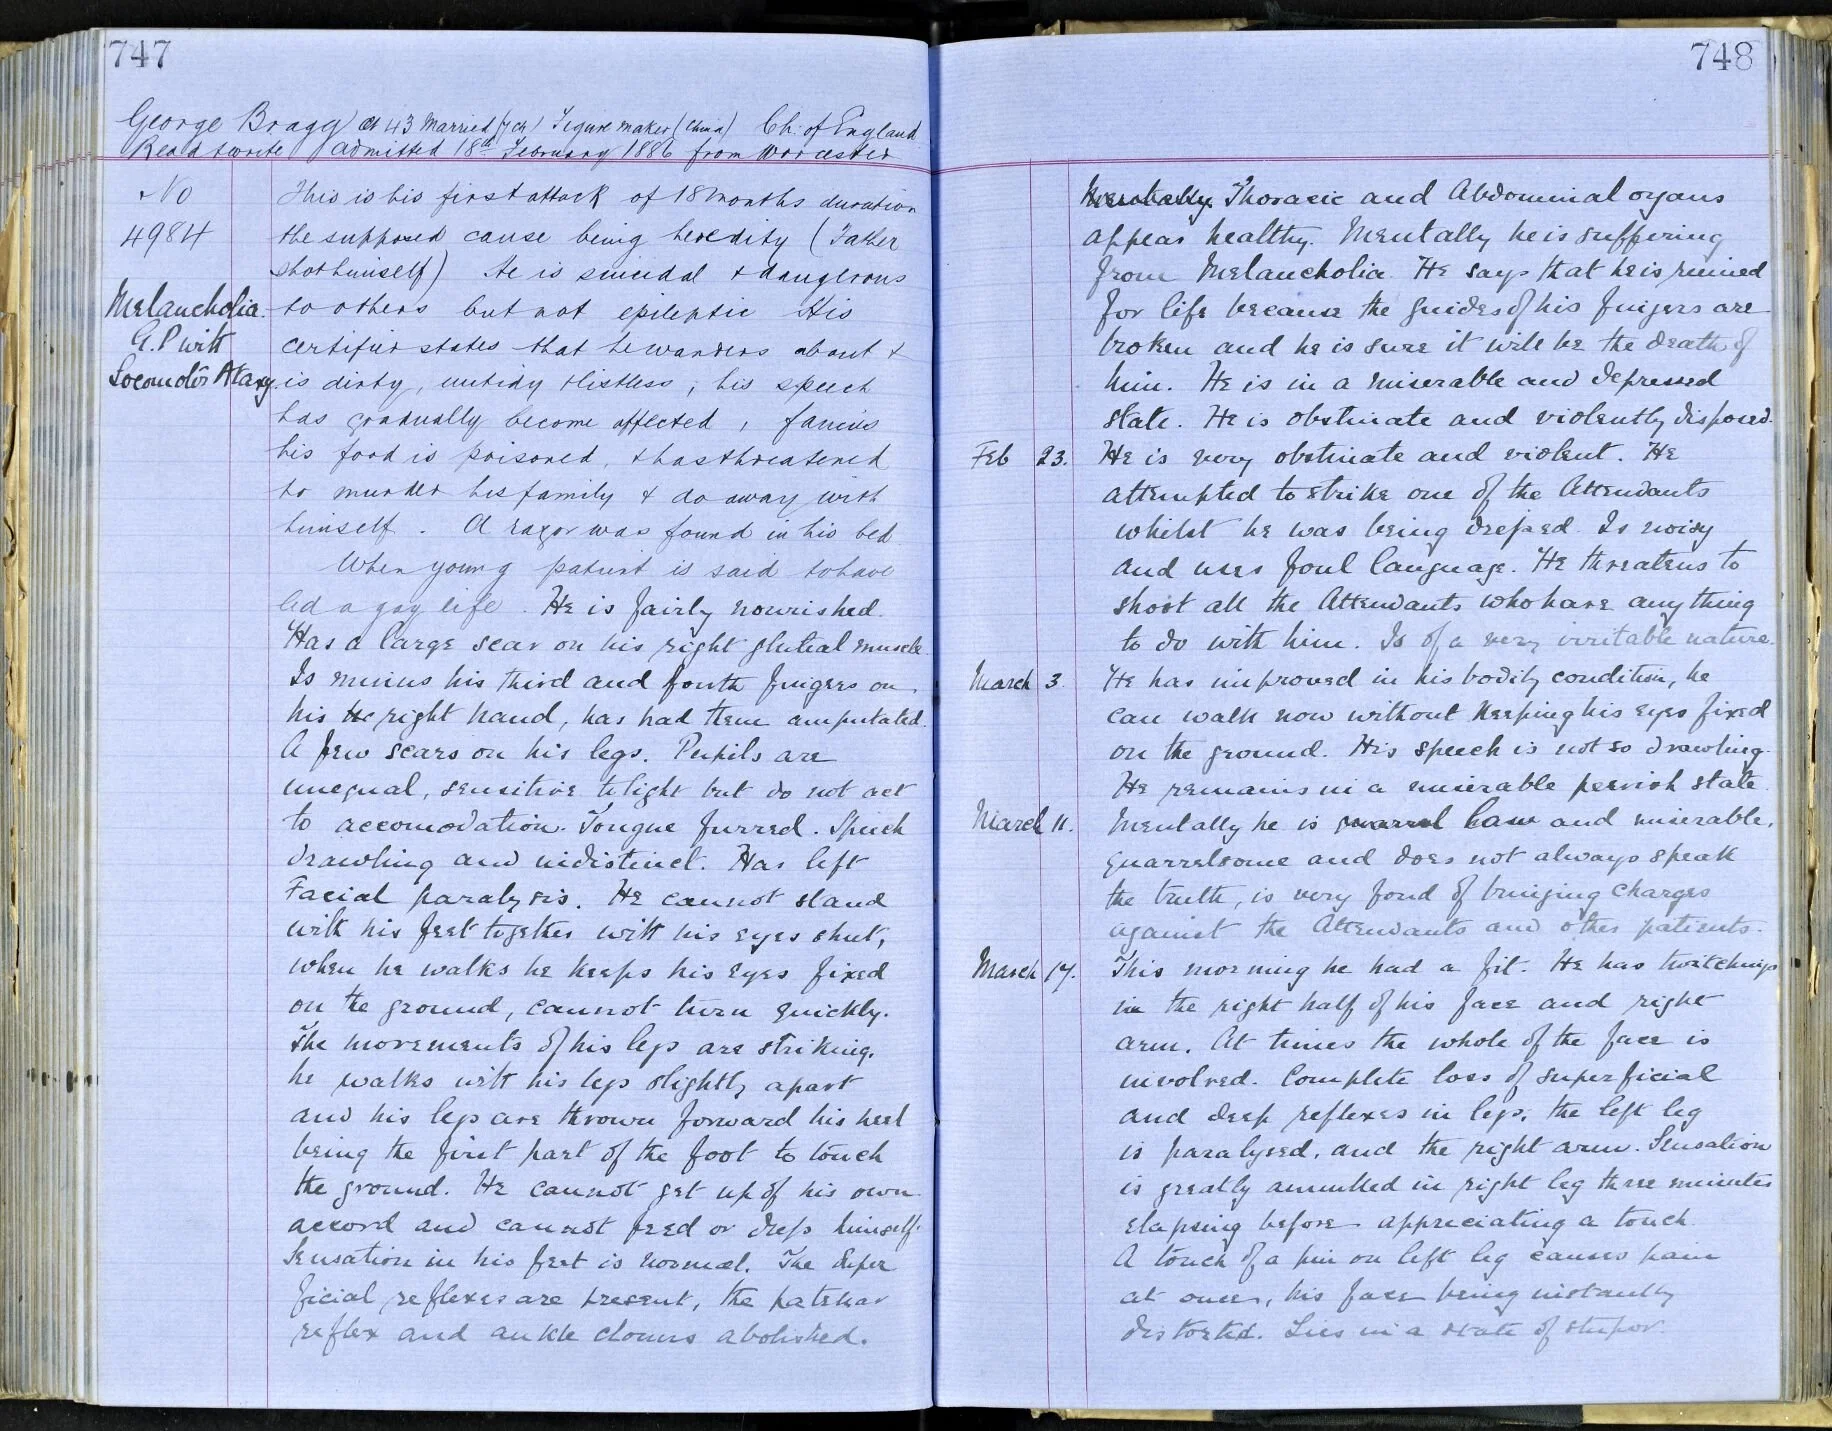 747
George Bragg æt 43 Married (7 ch) Figure maker (China) Ch: of England
Read & write admitted 18th February 1886 from Worcester
No
4984
Melancholia.
G.P with
Locomotor Ataxy
This is his first attack of 18 months duration
the supposed cause being heredity (Father
shot himself) He is suicidal & dangerous
to others but not epileptic His
certificate states that he wanders about &
is dirty, untidy & listless, his speech
has gradually become affected, fancies
his food is poisoned, & has threatened
to murder his family & do away with
himself. A razor was found in his bed
When young patient is said to have
led a gay life. He is fairly nourished.
Has a large scar on his right gluteal muscle
Is minus his third and fourth fingers on
his right hand, has had them amputated.
A few scars on his legs. Pupils are
unequal, sensitive to light but do not act
to accomodation. Tongue furred. Speech
drawling and indistinct. Has left
Facial paralysis. He cannot stand
with his feet together with his eyes shut,
when he walks he keeps his eyes fixed
on the ground, cannot turn quickly.
The movements of his legs are striking,
he walks with his legs slightly apart
and his legs are thrown forward his heel
being the first part of the foot to touch
the ground. He cannot get up of his own
accord and cannot feed or dress himself.
Sensation in his feet is normal. The super
ficial reflexes are present, the patellar
reflex and ankle clonus abolished.
748
Thoracic and Abdominal organs
appear healthy. Mentally he is suffering
from Melancholia. He says that he is ruined
for life because the guides of his fingers are
broken and he is sure it will be the death of
him. He is in a miserable and depressed
state. He is obstinate and violently disposed.
Feb 23. He is very obstinate and violent. He
attempted to strike one of the Attendants
whilst he was being dressed. Is noisy
and uses foul language. He threatens to
shoot all the Attendants who have anything
to do with him. Is of a very irritable nature.
March 3 He has improved in his bodily condition, he
can walk now without keeping his eyes fixed
on the ground. His speech is not so drawling.
He remains in a miserable peevish state.
March 11. Mentally he is low and miserable,
quarrelsome and does not always speak
the truth, is very fond of bringing charges
against the Attendants and other patients.
March 17. This morning he had a fit. He has twitchings
in the right half of his face and right
arm. At times the whole of the face is
involved. Complete loss of superficial
and deep reflexes in legs, the left leg
is paralysed, and the right arm. Sensation
is greatly annulled in right leg three minutes
elapsing before appreciating a touch.
A touch of a pin on left leg causes pain
at once, his face being instantly
distorted. Lies in a state of stupor.